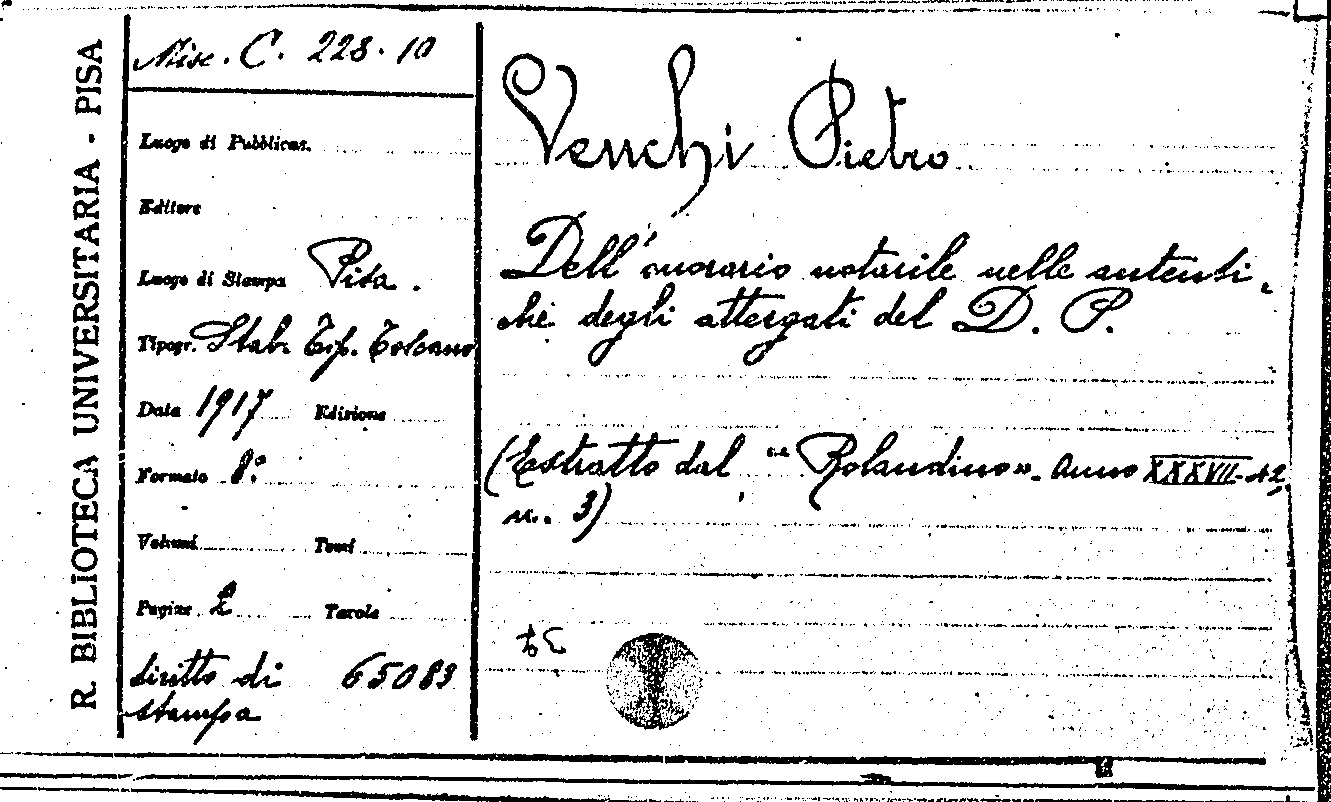 R. BIBLIOTECA UNIVERSITARIA - PISA
Misc. C. 228.10
Luogo di Pubblicaz.
Editore
Luogo di Stampa Pisa.
Tipogr. Stab. Tip. Toscano
Data 1917 Edizione
Formato 8º
Volumi Tomi
Pagine 2 Tavole
diritto di 65083
stampa
Venchi Pietro
Dell'onorario notarile nelle autenti-
che degli attergati del D. P.
(Estratto dal "Rolandino". Anno XXXVII
n. 3)